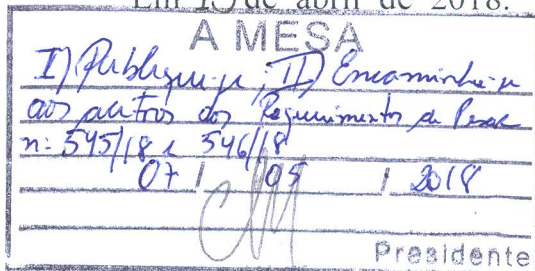 Em 13 de abril de 2018.
A MESA
I) Publique-se; II) Encaminhe-se
aos autros dos Requerimentos de Pesar
n: 545/18 e 546/18
07 / 05 / 2018
Presidente